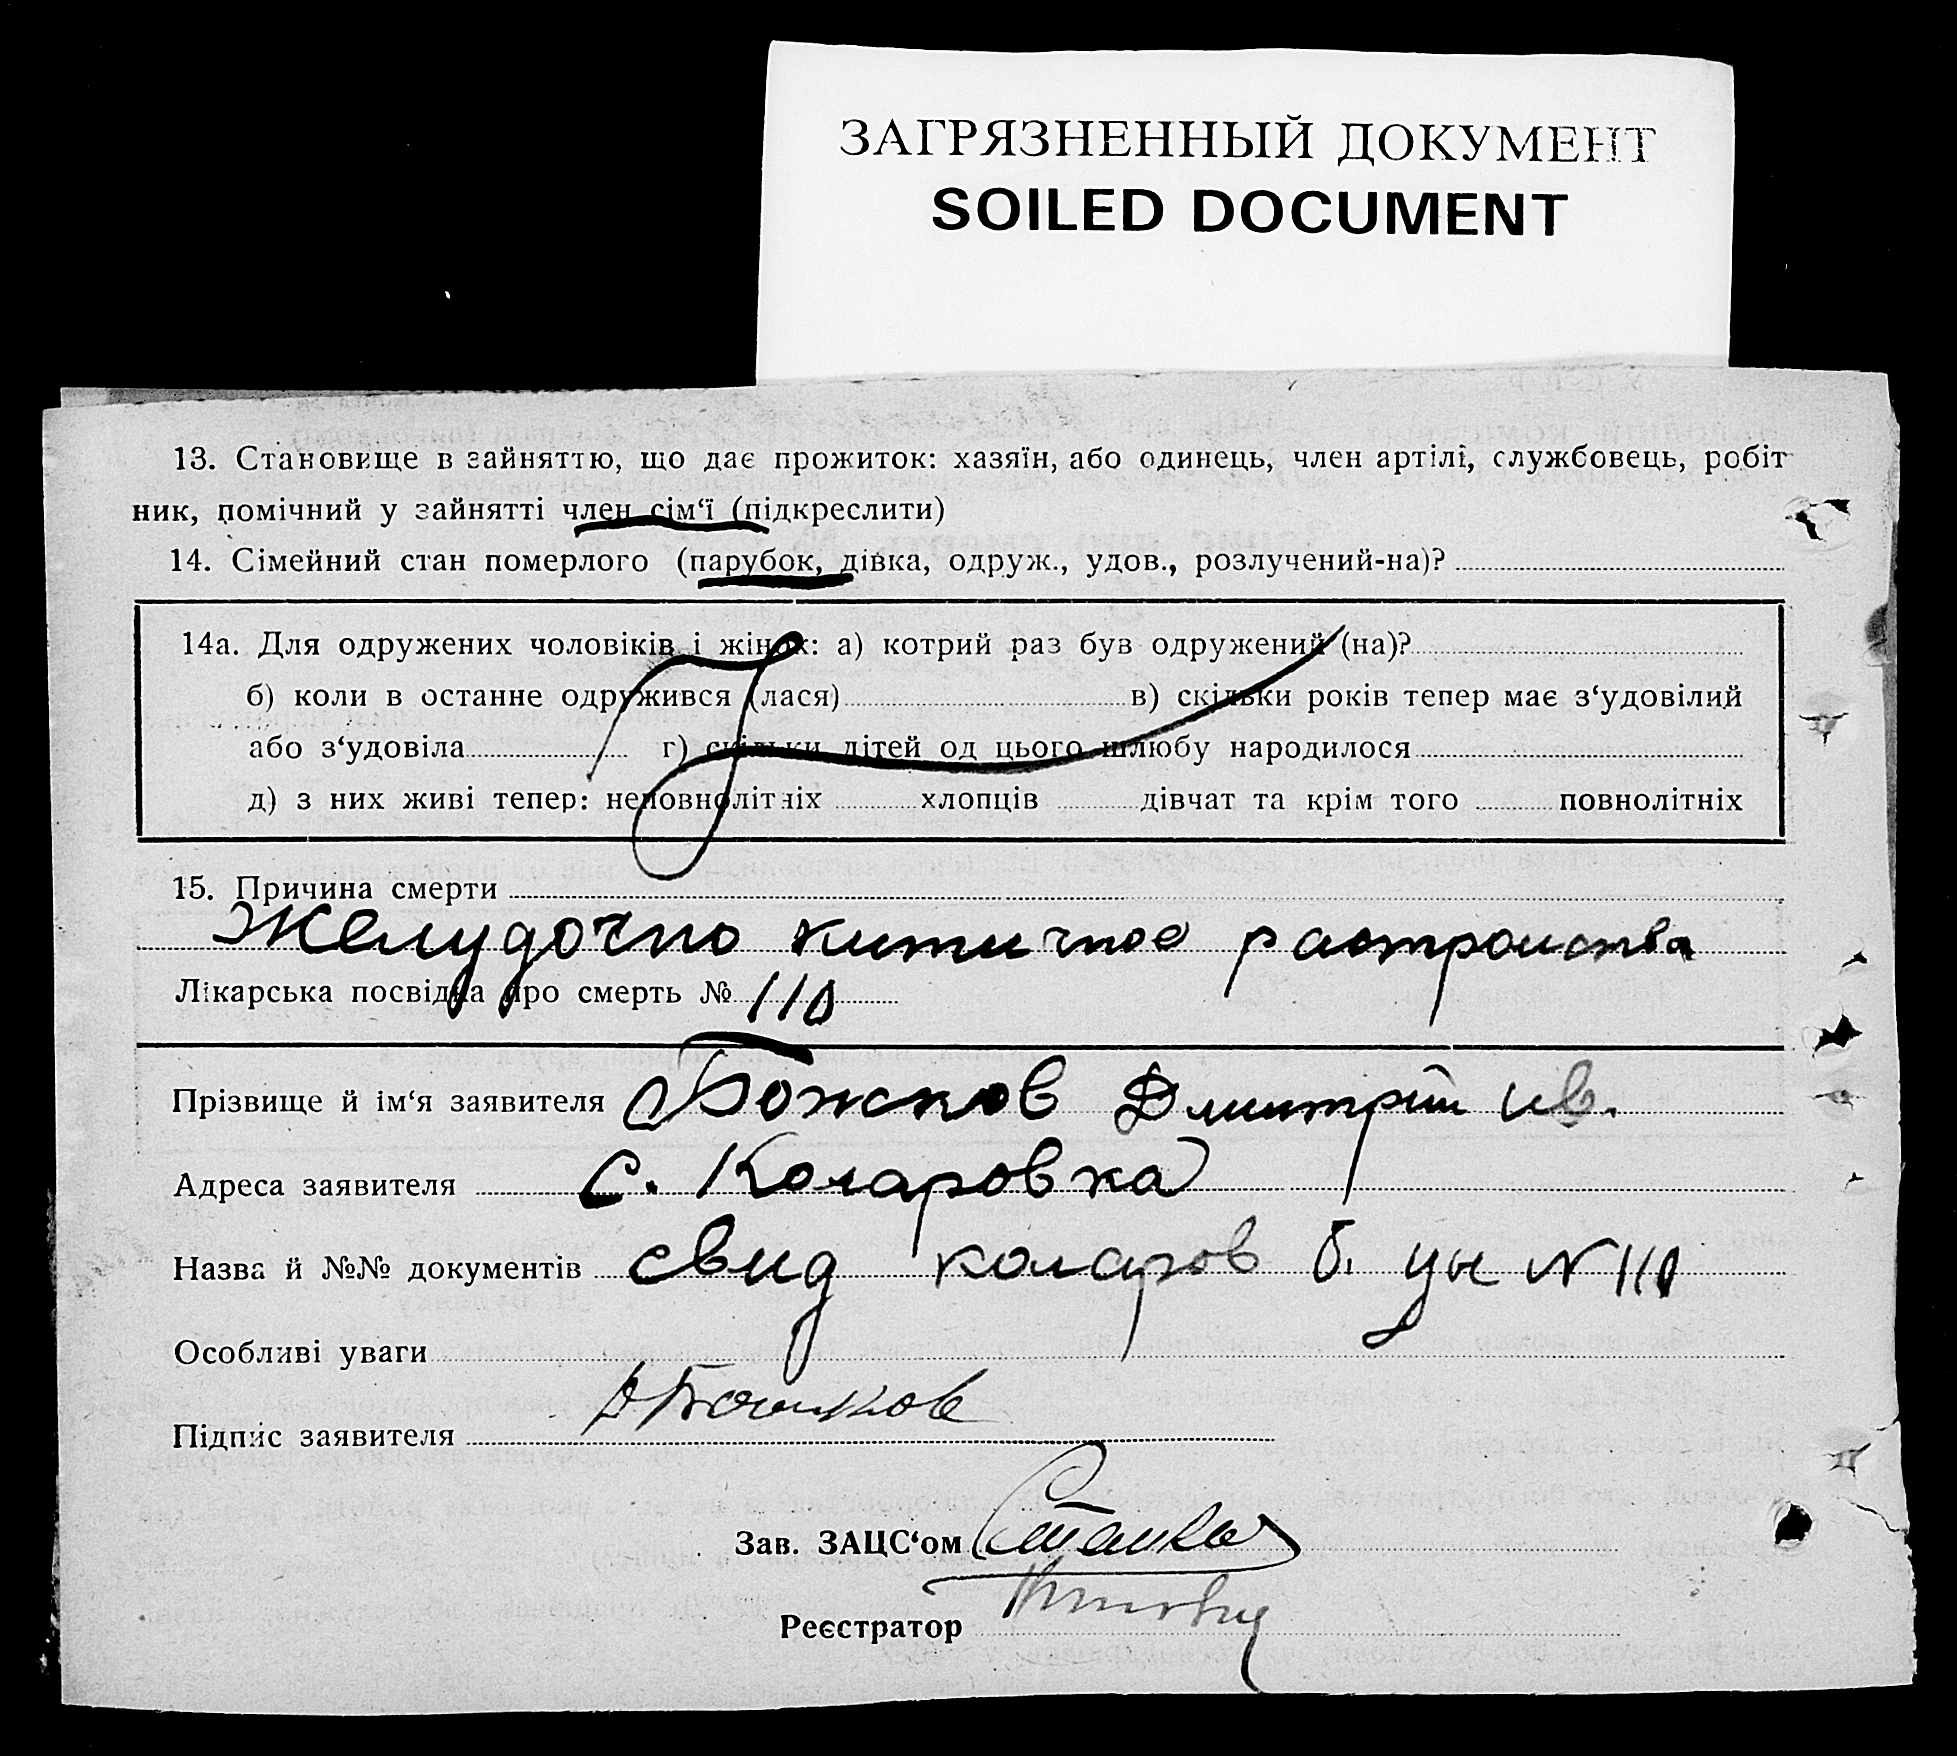 ЗАГРЯЗНЕННЫЙ ДОКУМЕНТ
SOILED DOCUMENT
13. Становище в зайняттю, що дає прожиток: хазяїн, або одинець, член артілі, службовець, робіт
ник, помічний у зайнятті член сім‘ї (підкреслити)
14. Сімейний стан померлого (парубок, дівка, одруж., удов., розлучений-на)?
14а. Для одружених чоловіків і жінок: а) котрий раз був одружений (на)?
б) коли в останне одружився (лася) в) скільки років тепер має з‘удовілий
або з‘удовіла г) скільки дітей од цього шлюбу народилося
д) з них живі тепер: неповнолітніх хлопців дівчат та крім того повнолітніх
15. Причина смерти
Желудочно кишичное растроиства
Лікарська посвідка про смерть № 110
Прізвище й ім‘я заявителя Божков Дмитрий ив.
Адреса заявителя с. Коларовка
Назва й №№ документів свид коларов б. уч N 110
Особливі уваги
Підпис заявителя ДБошков
Зав. ЗАЦС‘ом
Реєстратор